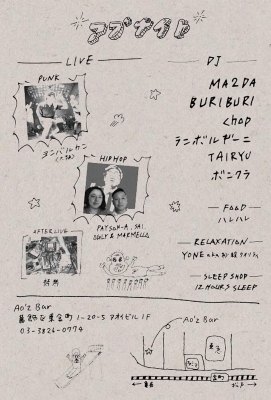 アブサイド
LIVE
DJ
PUNK
HIPHOP
PAYSON-A, SAI,
OGLY & MARMELO
AFTER LIVE
MA2DA
BURIBURI
chop
TAIRYU
ボニクラ
FOOD
ハレハレ
RELAXATION
YONE a.k.a
SLEEP SHOP
12 HOURS SLEEP
Ao'z Bar
葛飾区東金町 1-20-5 アオイビル 1F
03-3826-0774
Ao'z Bar
金町